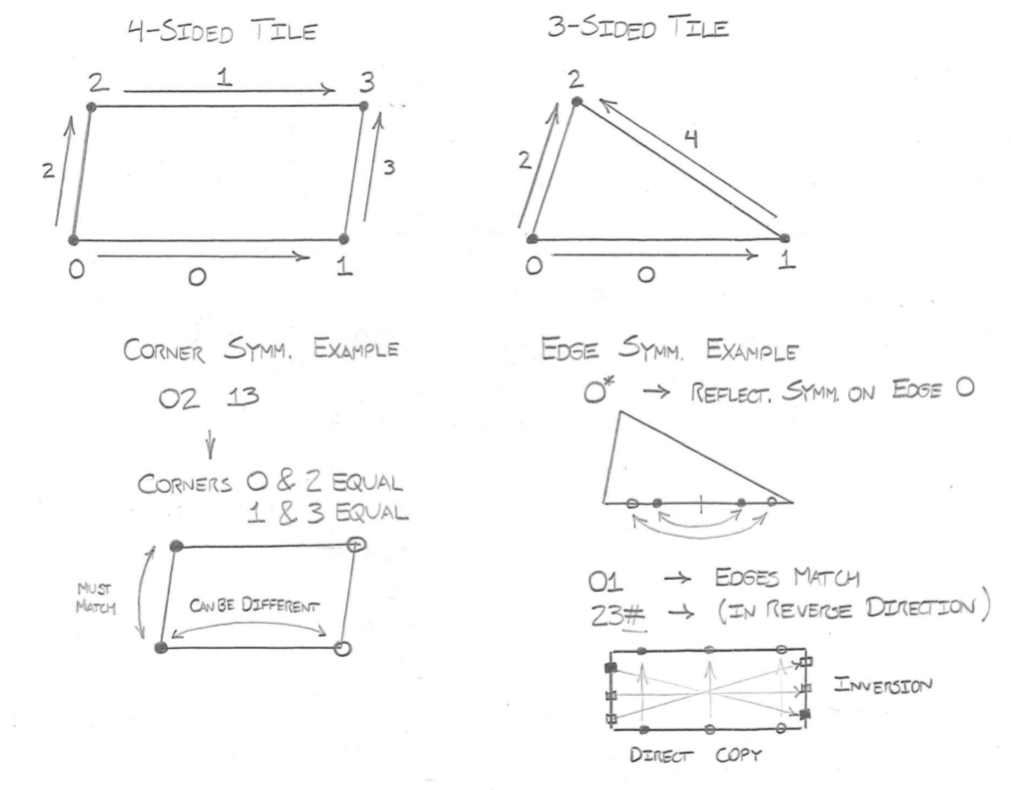 4-SIDED TILE
2 1 3
2 3
0 0 1
3-SIDED TILE
2
2 4
0 0 1
CORNER SYMM. EXAMPLE
02 13
CORNERS 0 & 2 EQUAL
1 & 3 EQUAL
MUST
MATCH
CAN BE DIFFERENT
EDGE SYMM. EXAMPLE
0* → REFLECT. SYMM. ON EDGE 0
01 → EDGES MATCH
23# → (IN REVERSE DIRECTION)
INVERSION
DIRECT COPY